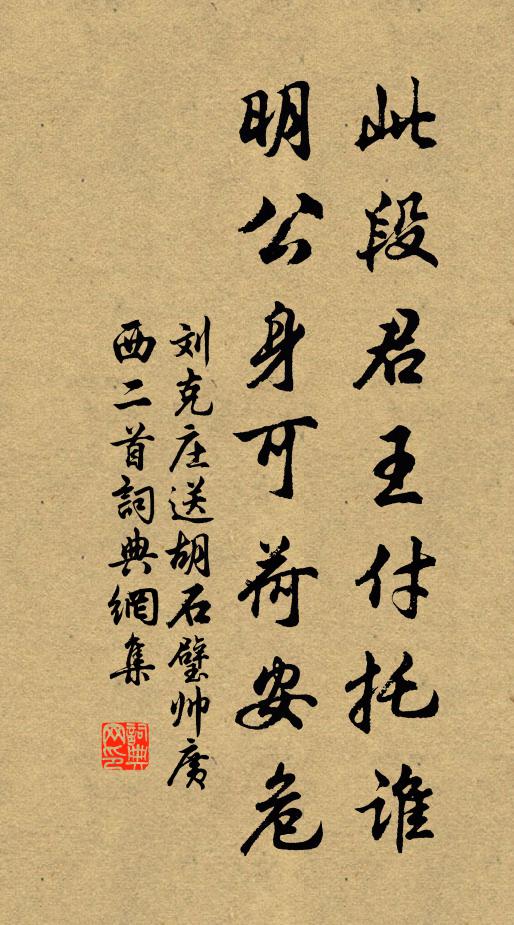 此段君王付托谁
明公身可荷安危
刘克庄送胡石壁帅广
西二首詞典網集
詞典
网印